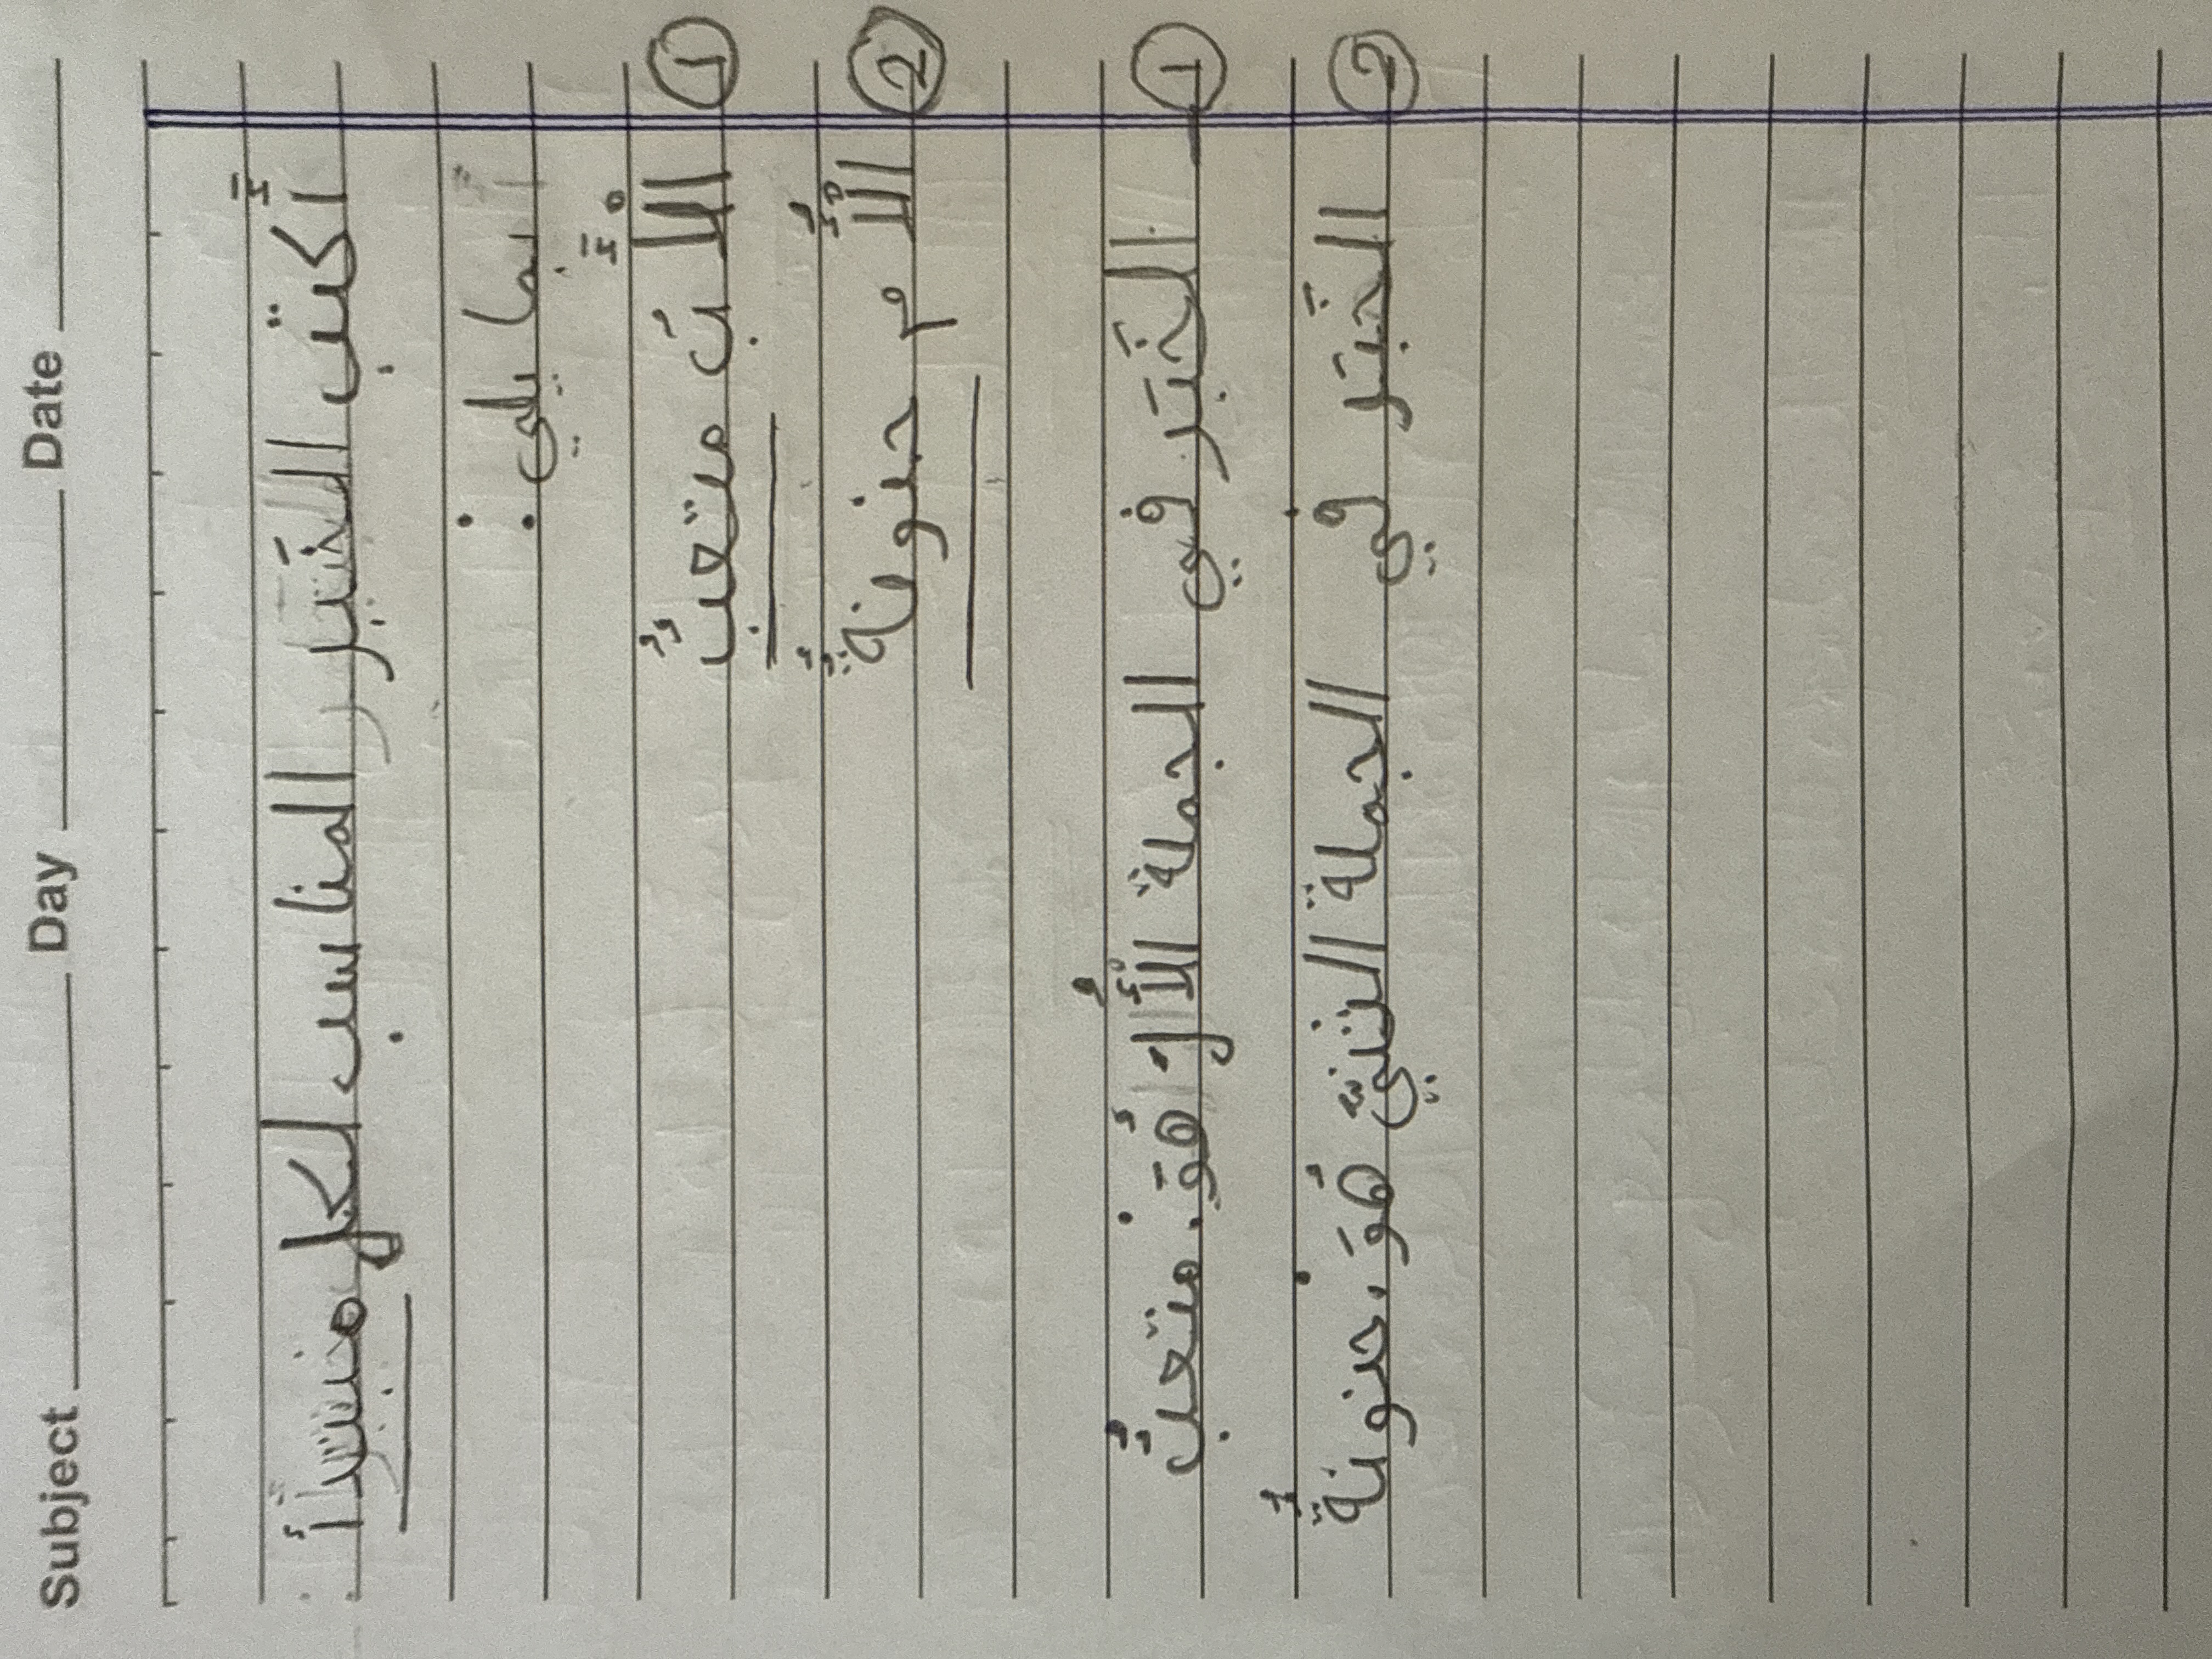 Subject Day Date
أَكتب الخَبر المناسب لكل منبدأ
فيما يلي :
① الْأَبُ متعبٌ
② الْأُم حنونةٌ
① الخَبَر في الجملة الْأُولى هُوَ : متعبٌ
② الخَبَر في الجملة الثنية هُوَ : حنونةٌ